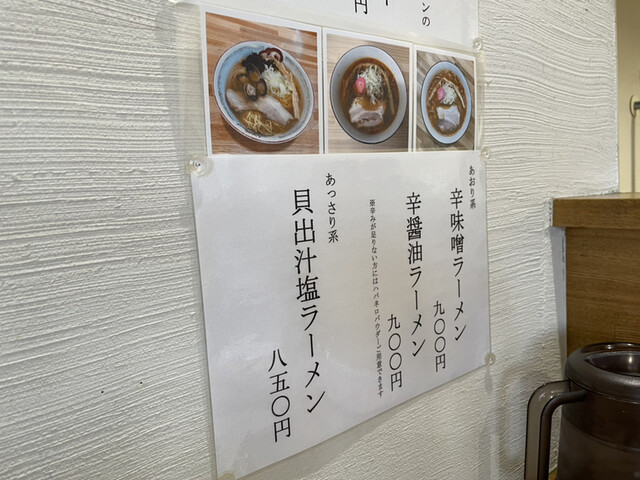 ンの
円
あおり系
辛味噌ラーメン
九〇〇円
辛醤油ラーメン
九〇〇円
※辛みが足りない方にはハバネロパウダーご用意できます
あっさり系
貝出汁塩ラーメン
八五〇円